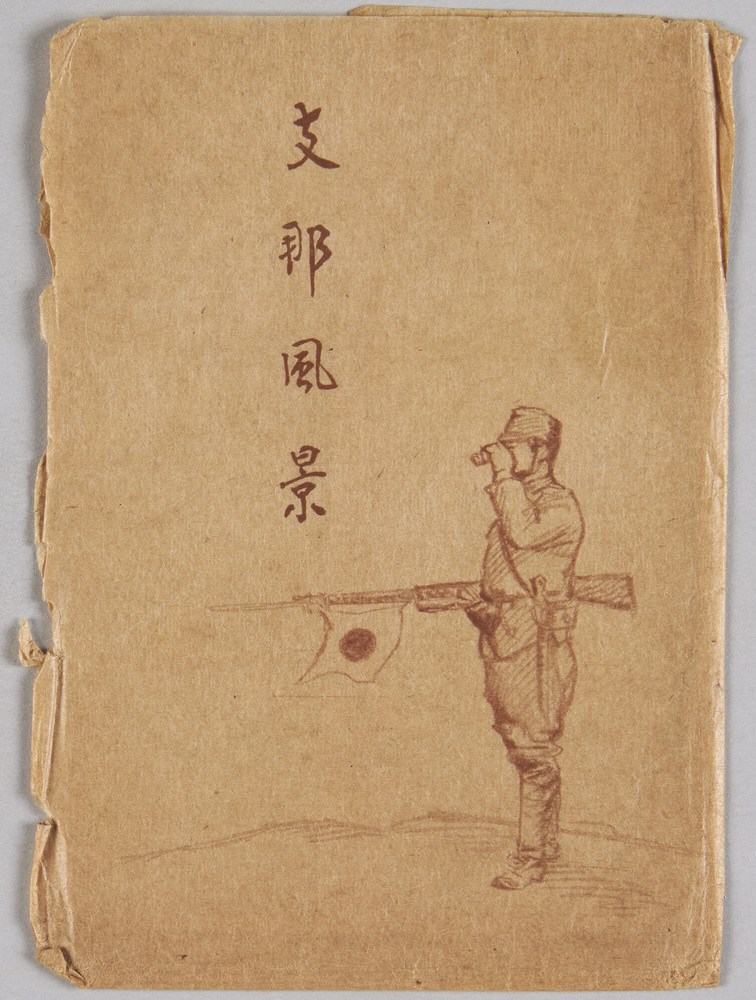 支那風景